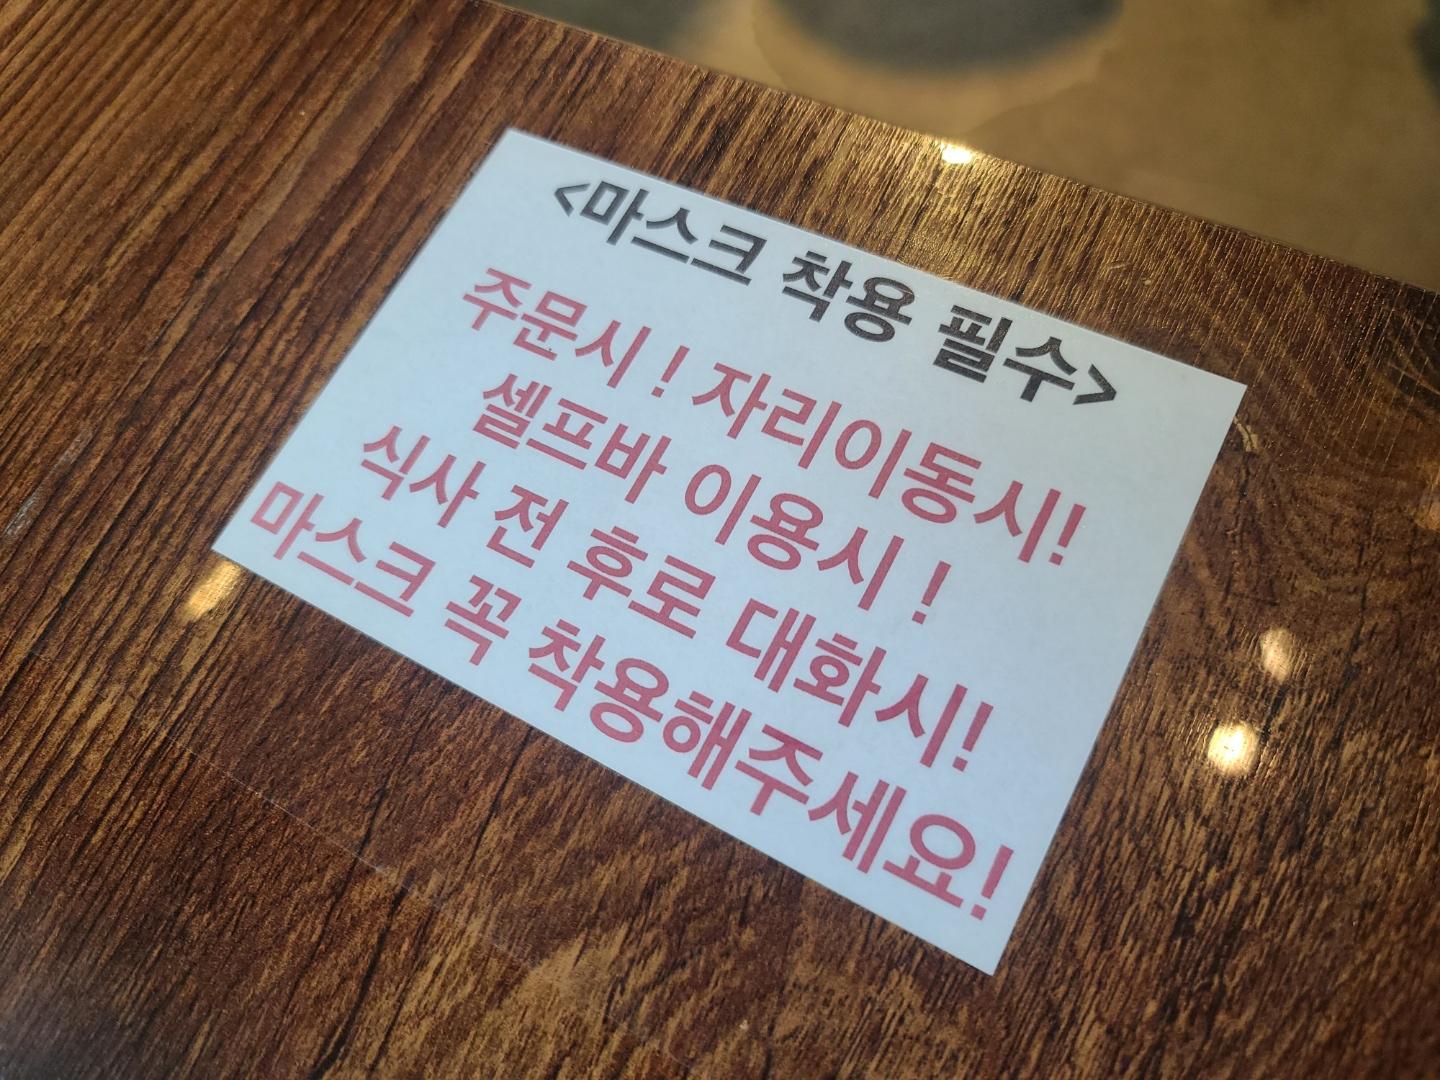 <마스크 착용 필수>
주문시 ! 자리이동시!
셀프바 이용시 !
식사 전 후로 대화시!
마스크 꼭 착용해주세요!